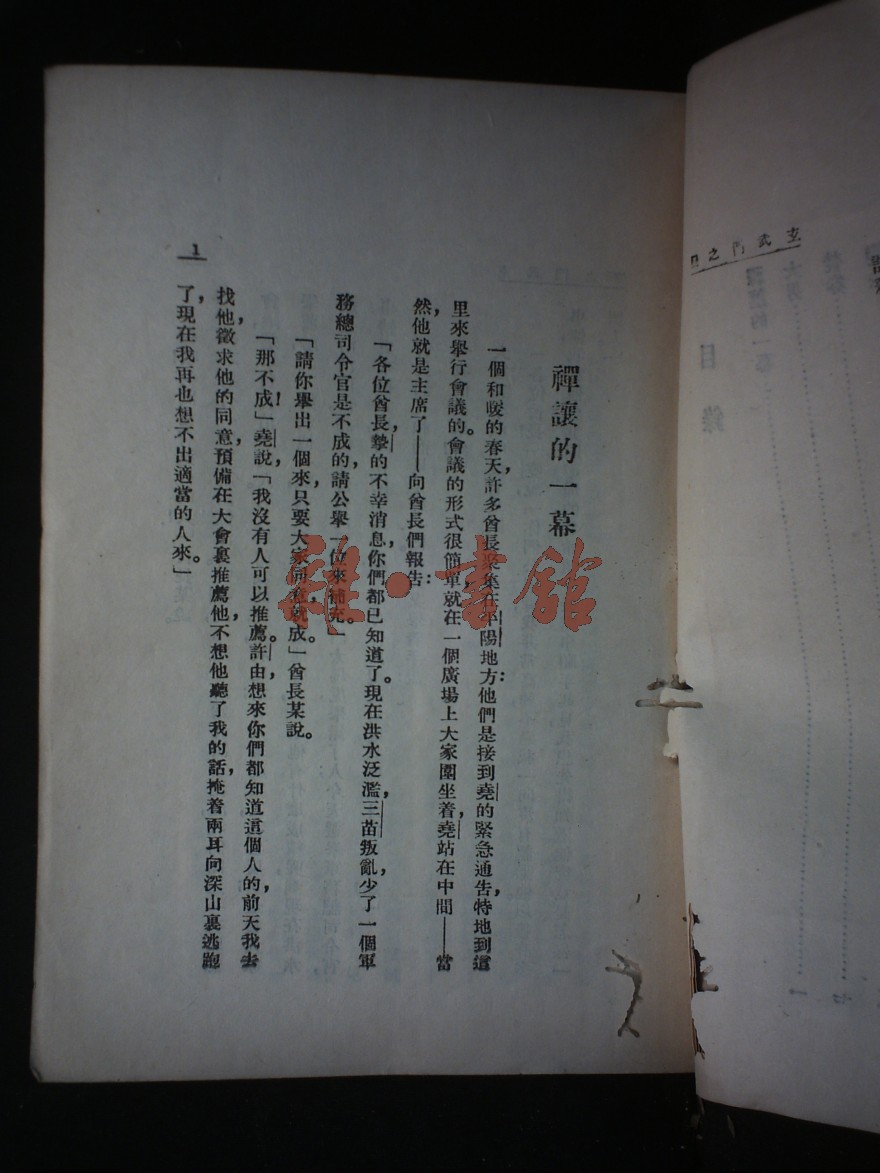 玄武門之
目錄
禪讓的一幕
一個和暖的春天，許多酋長聚集在平陽地方：他們是接到堯的緊急通告，特地到這
里來舉行會議的。會議的形式很簡單就在一個廣場上大家圍坐着，堯站在中間——當
然，他就是主席了——向酋長們報告：
「各位酋長，摯的不幸消息，你們都已知道了。現在洪水泛濫，三苗叛亂，少了一個軍
務總司令官是不成的，請公舉一位來補充。」
「請你舉出一個來，只要大家同意就成。」酋長某說。
「那不成！」堯說，「我沒有人可以推薦。許由，想來你們都知道這個人的，前天我去
找他，徵求他的同意，預備在大會裏推薦他，不想他聽了我的話，掩着兩耳向深山裏逃跑
了，現在我再也想不出適當的人來。」
1
雜·書館